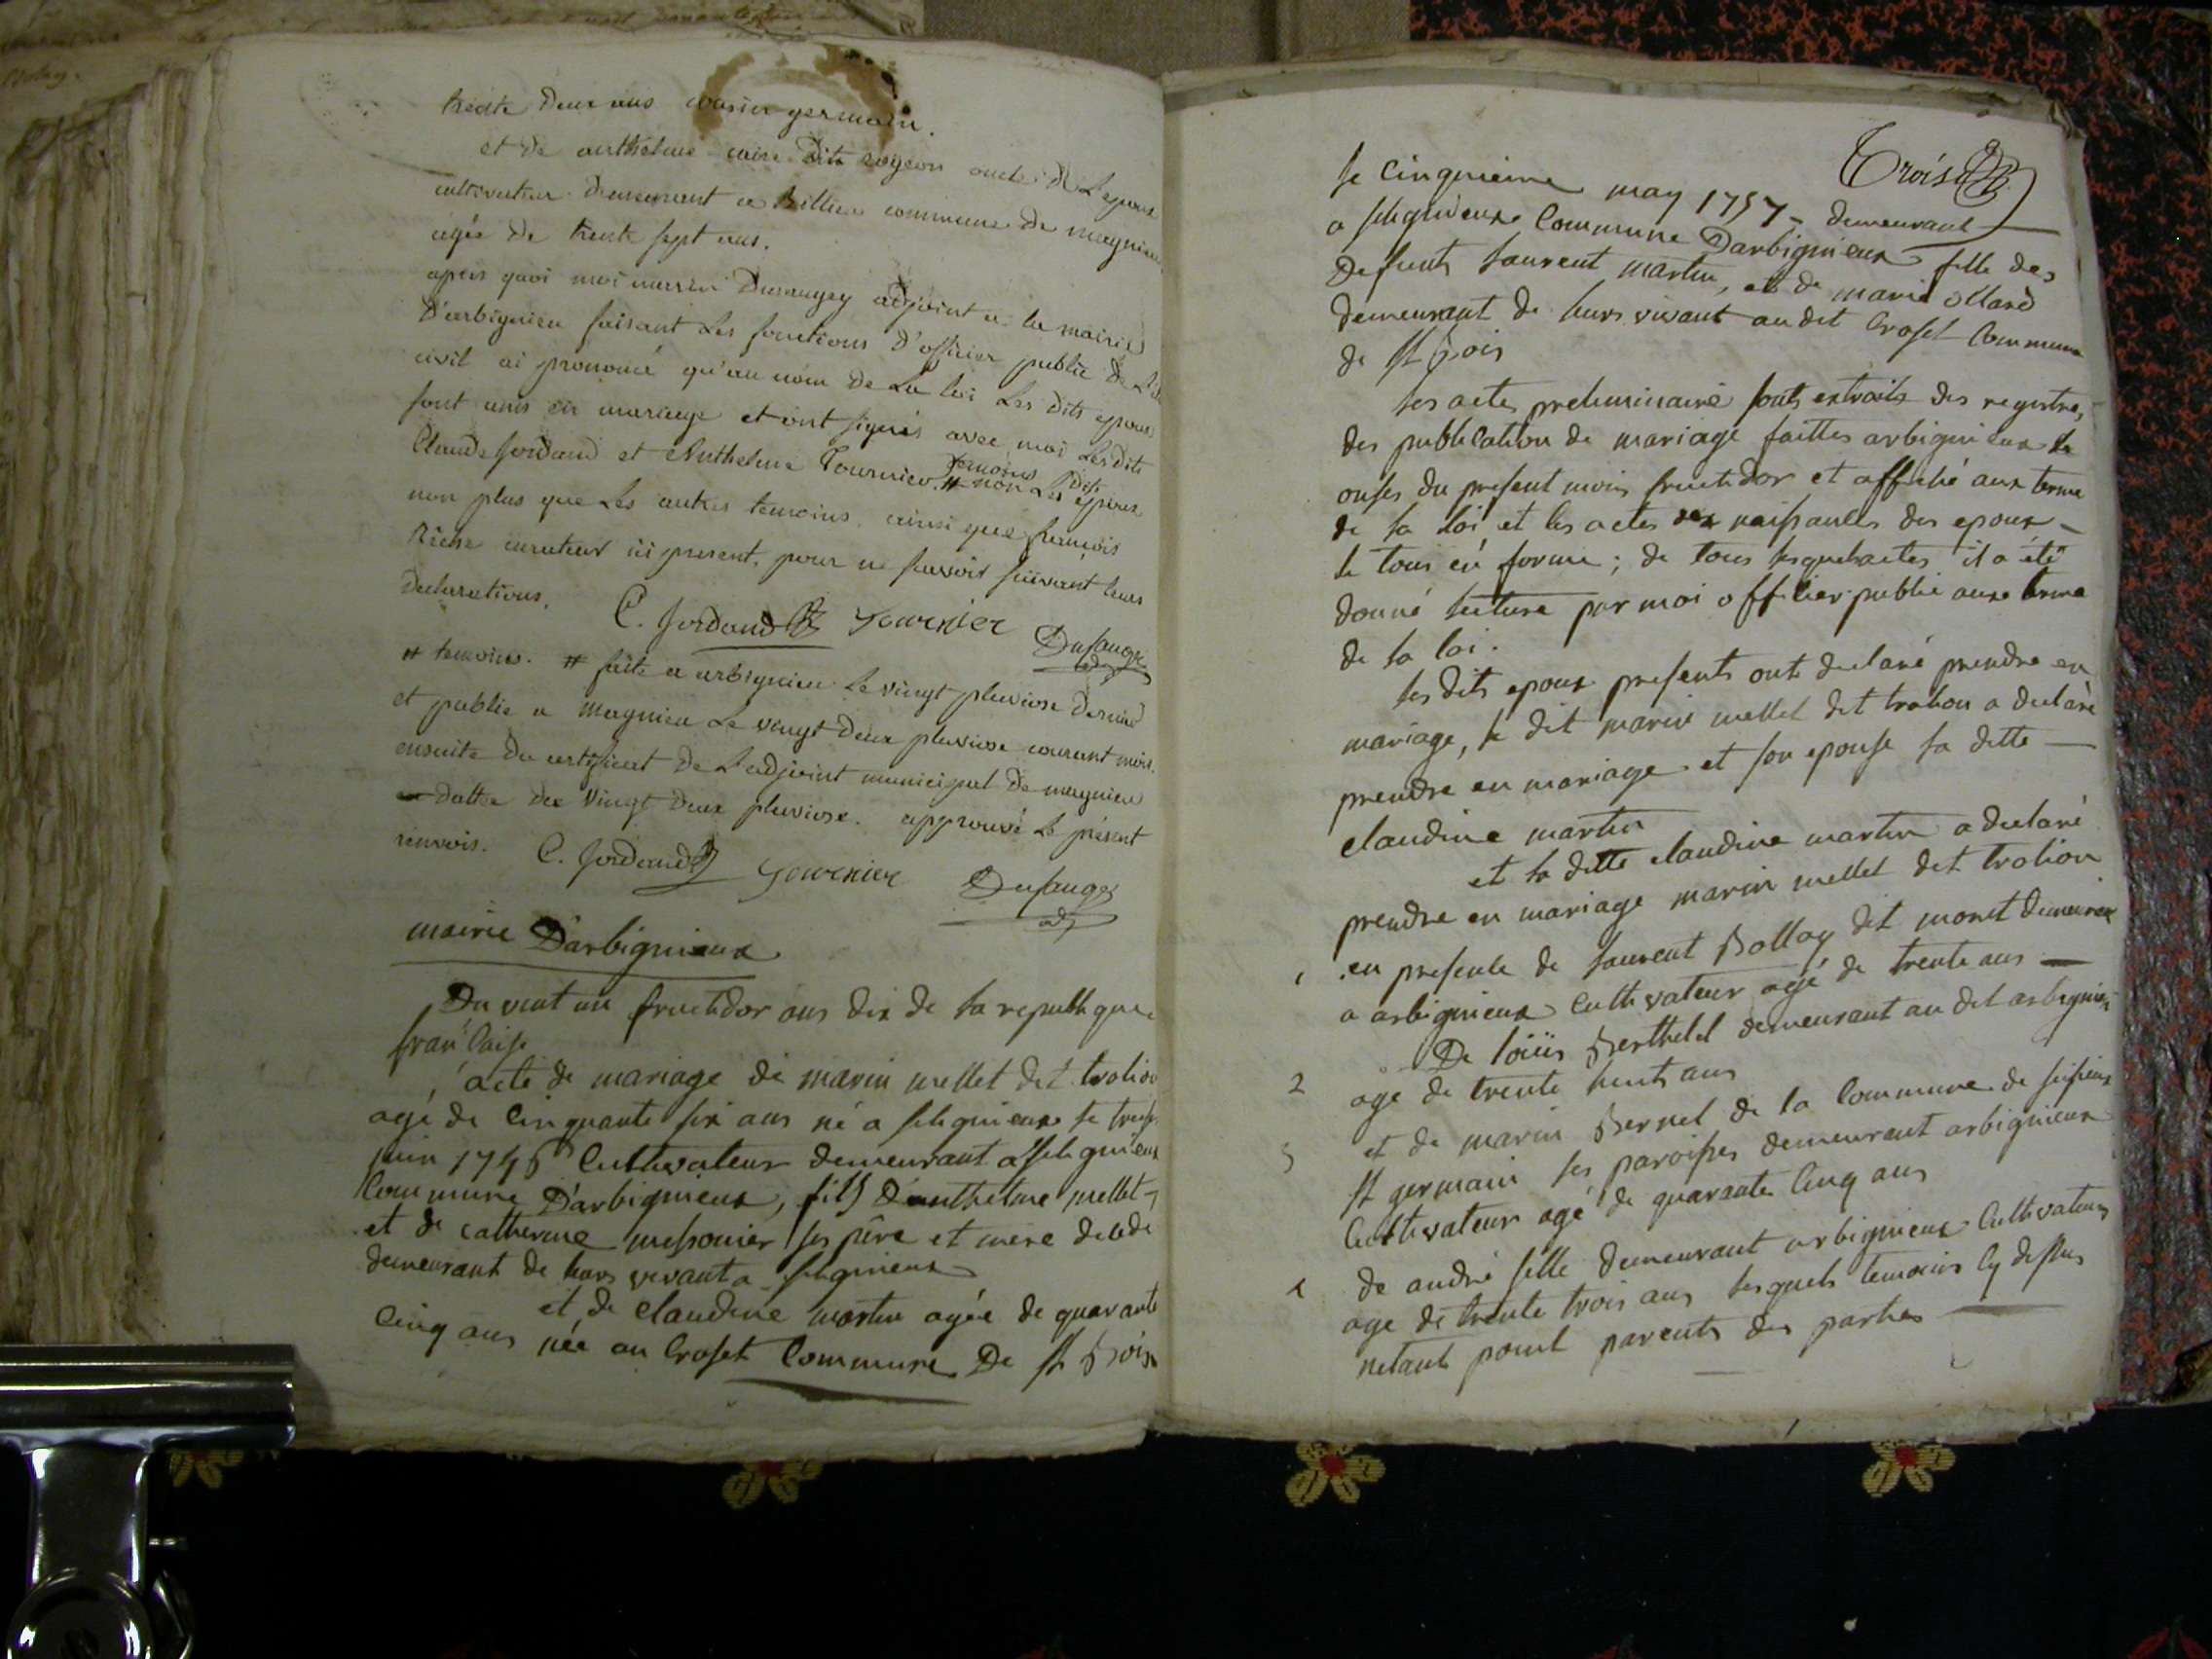 trente deux ans cousin germain.
et de anthelme caire dit oncle de L'epoux
cultivateur demeurant a Billieu commune de magnieu
agée de trente sept ans.
apres quoi moi Dusaugey adjoint a la mairie
D'arbignieu faisant Les fonctions D'officier public de L'
civil ai prononcé qu'au nom de La loi Les dits epoux
sont unis en mariage et ont signés avec moi Les dits
Claude Jordand et Anthelme Tournier temoins # non Les dits epoux
non plus que Les autres temoins, ainsi que françois
curateur ici present, pour ne sçavoir suivant leurs
declarations.
C. Jordand Tournier Dusaugey adj
# temoins. # faite a arbignieu Le vingt pluviose dernier
et publie a magnieu Le vingt deux pluviose courant mois.
ensuite du certificat de L'adjoint municipal de magnieu
en datte du vingt deux pluviose. approuvé Le présent
renvois. C. Jordand Tournier Dusaugey adj
mairie D'arbignieux
Du vint un fructidor ans dix de la republique
françaisse
acte de mariage de marin mellet dit trolion
agé de cinquante six ans né a selignieux le treise
juin 1746 Cultivateur demeurant a selignieux
Commune D'arbignieux, fils d'anthelme mellet
et de catherine messonier ses père et mère decede
demeurant de leurs vivant a selignieux
et de claudine martin agée de quarante
cinq ans née au Croset Commune De st Bois
Trois
le cinquieme may 1757 - demeurant
a selignieux Commune Darbignieux fille des
defunts laurent martin, et de marie ollard
demeurant de leurs vivant au dit Croset Commune
de st Bois
les actes preliminaire sonts extraits des registres,
des publication de mariage faittes arbignieux le
onses du present mois fructidor et affiché aux terme
de la loi et les actes des naissances des epoux
le tous en forme ; de tous lesquels actes il a été
donné lecture par moi officier public aux terme
de la loi.
les dits epoux presents onts declaré prendre en
mariage, le dit marin mellet dit trolion a declaré
prendre en mariage et son epouse la ditte
claudine martin
et la ditte claudine martin a declaré
prendre en mariage marin mellet dit trolion
1 en presence de laurent Bollay dit monet demeurant
a arbignieux Cultivateur agé de trente ans
2 De loüis Berthelet demeurant au dit arbignieu
age de trente huit ans
3 et de marin Bernel de la Commune de
st germain les paroisses demeurant arbignieux
Cultivateur agé de quarante Cinq ans
4 de andré selle demeurant arbignieux Cultivateur
age de trente trois ans lesquels temoins Cy dessus
netant point parents des parties